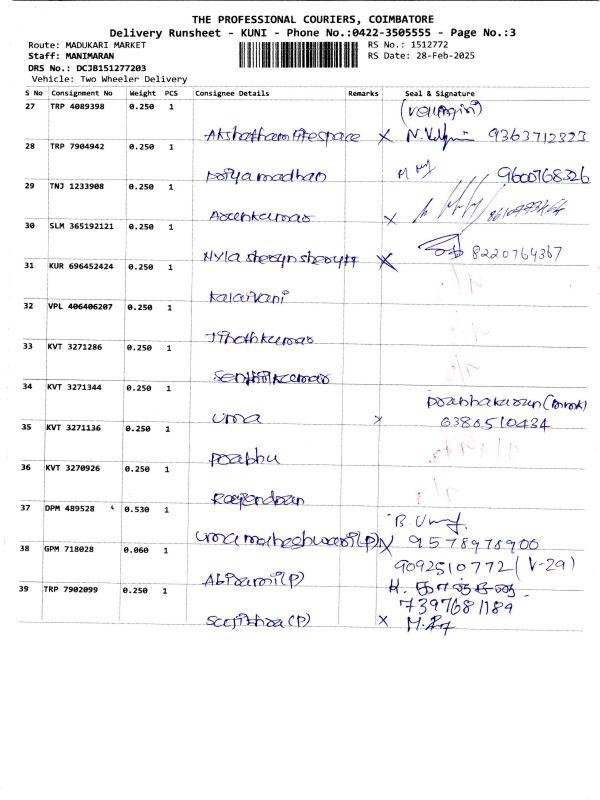 THE PROFESSIONAL COURIERS, COIMBATORE
Delivery Runsheet - KUNI - Phone No.:0422-3505555 - Page No.:3
Route: MADUKARI MARKET RS No.: 1512772
Staff: MANIMARAN RS Date: 28-Feb-2025
DRS No.: DCJB151277203
Vehicle: Two Wheeler Delivery
S No Consignment No Weight PCS Consignee Details Remarks Seal & Signature
27 TRP 4089398 0.250 1
X 9363712323
28 TRP 7904942 0.250 1
Priya madhan 9600768326
29 TNJ 1233908 0.250 1
Arunkumar X
30 SLM 365192121 0.250 1
Nyla X 8220764367
31 KUR 696452424 0.250 1
Kalaivani
32 VPL 406406207 0.250 1
33 KVT 3271286 0.250 1
Senthilkumar
34 KVT 3271344 0.250 1
Prabhakaran
uma X 6380510434
35 KVT 3271136 0.250 1
Prabhu
36 KVT 3270926 0.250 1
Rajendran
37 DPM 489528 0.530 1
B. Uma
Uma maheshwari(P) X 9578978900
38 GPM 718028 0.060 1 9092510772 (V-29)
Abirami(P) K.
39 TRP 7902099 0.250 1 7397681189
(P) X